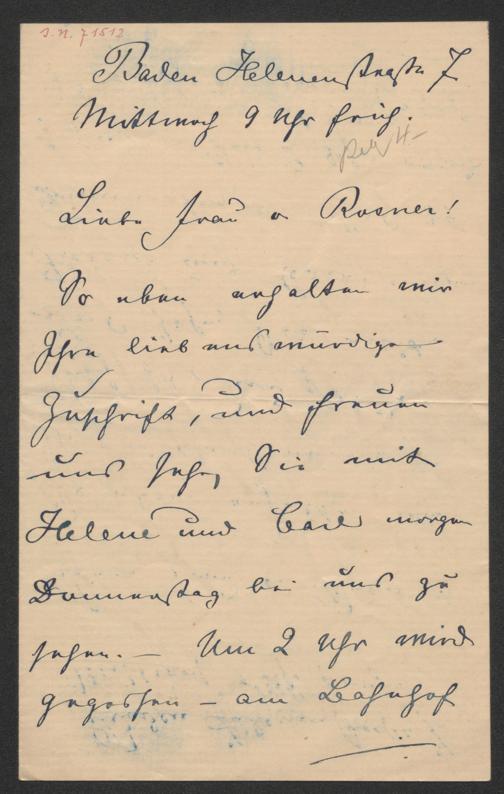 I.N. 71512
Baden Helenenstraße 7
Mittwoch 9 Uhr früh.
Liebe Frau v Rosner!
So eben erhalten wir
Ihre liebenswürdige
Zuschrift, und freuen
uns sehr, Sie mit
Helene und Carl morgen
Donnerstag bei uns zu
sehen. – Um 2 Uhr wird
gegessen – am Bahnhof